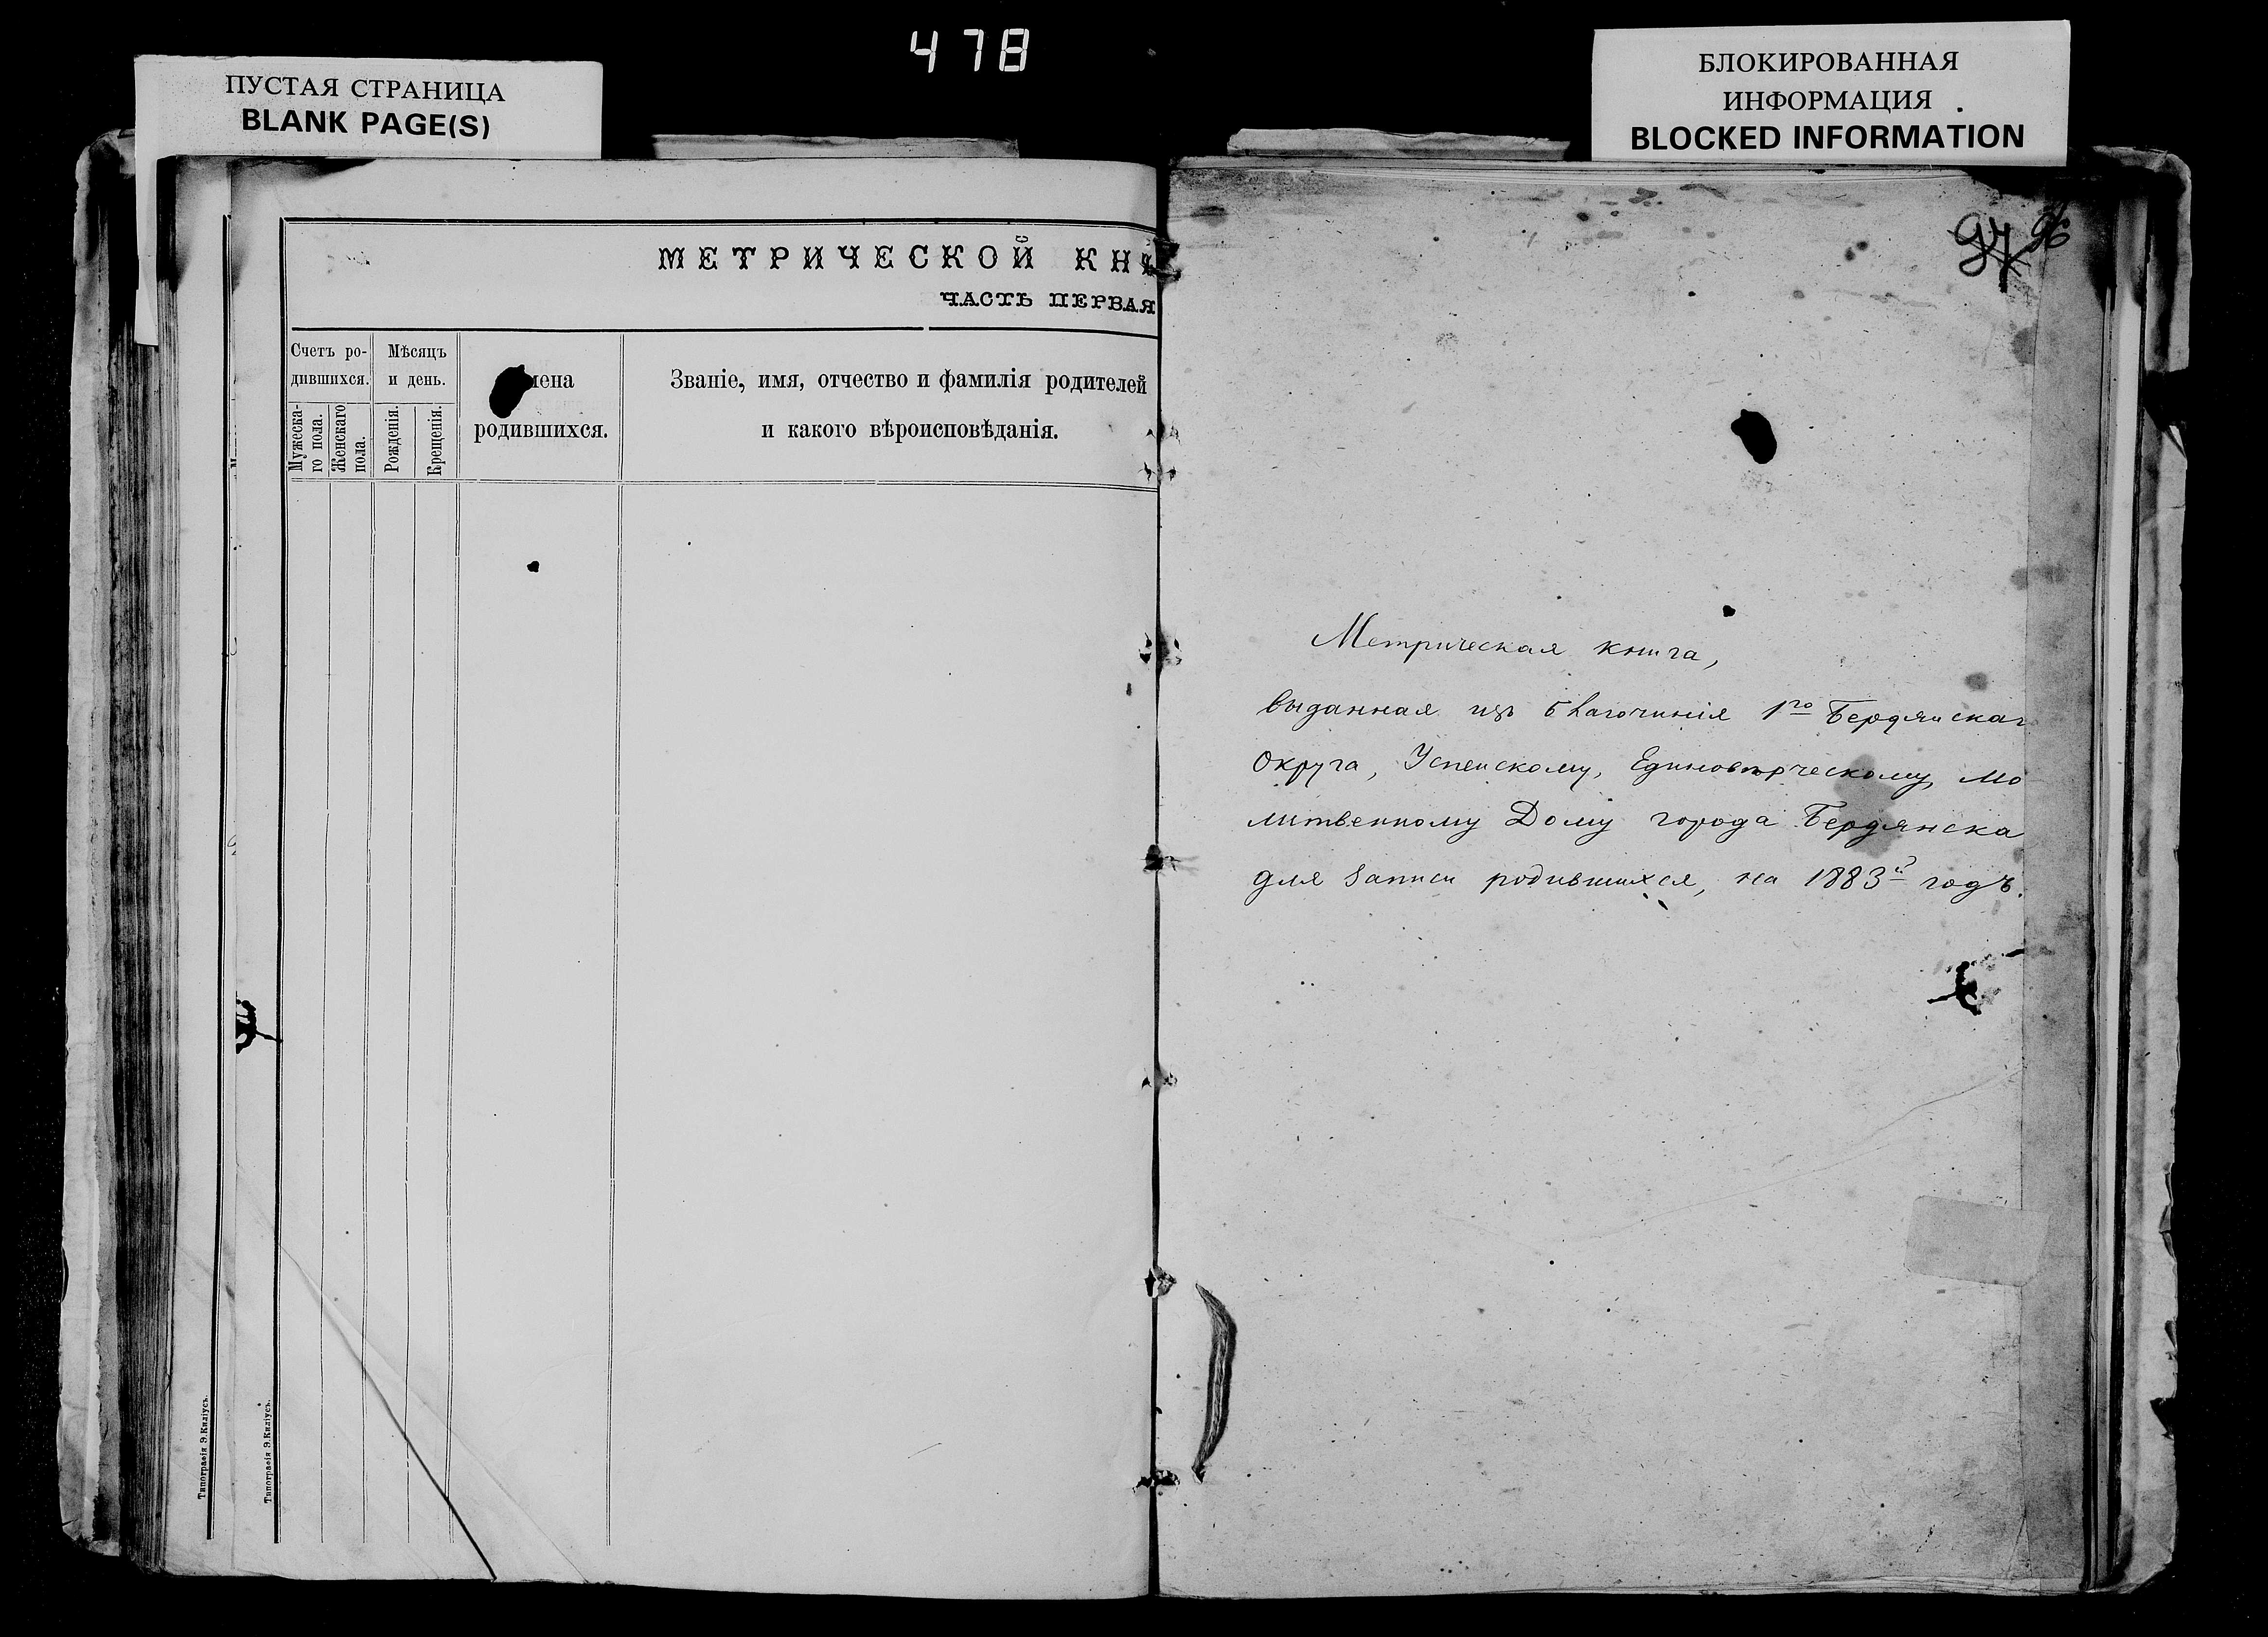 478
ПУСТАЯ СТРАНИЦА
BLANK PAGE(S)
БЛОКИРОВАННАЯ
ИНФОРМАЦИЯ
BLOCKED INFORMATION
МЕТРИЧЕСКОЙ КНИ
ЧАСТЬ ПЕРВАЯ
Счетъ ро-
дившихся.
Мужеска-
го пола.
Женскаго
пола.
Мѣсяцъ
и день.
Рожденія.
Крещенія.
мена
родившихся.
Званіе, имя, отчество и фамилія родителей
и какого вѣроисповѣданія.
Типографія Э.Киліусъ.
Типографія Э.Киліусъ.
97 96
Метрическая книга,
выданная изъ благочинія 1го Бердянскаг
Округа, Успенскому, Единовѣрческому, Мо
литвенному Дому города Бердянска
для записи родившихся, на 1883й годъ.